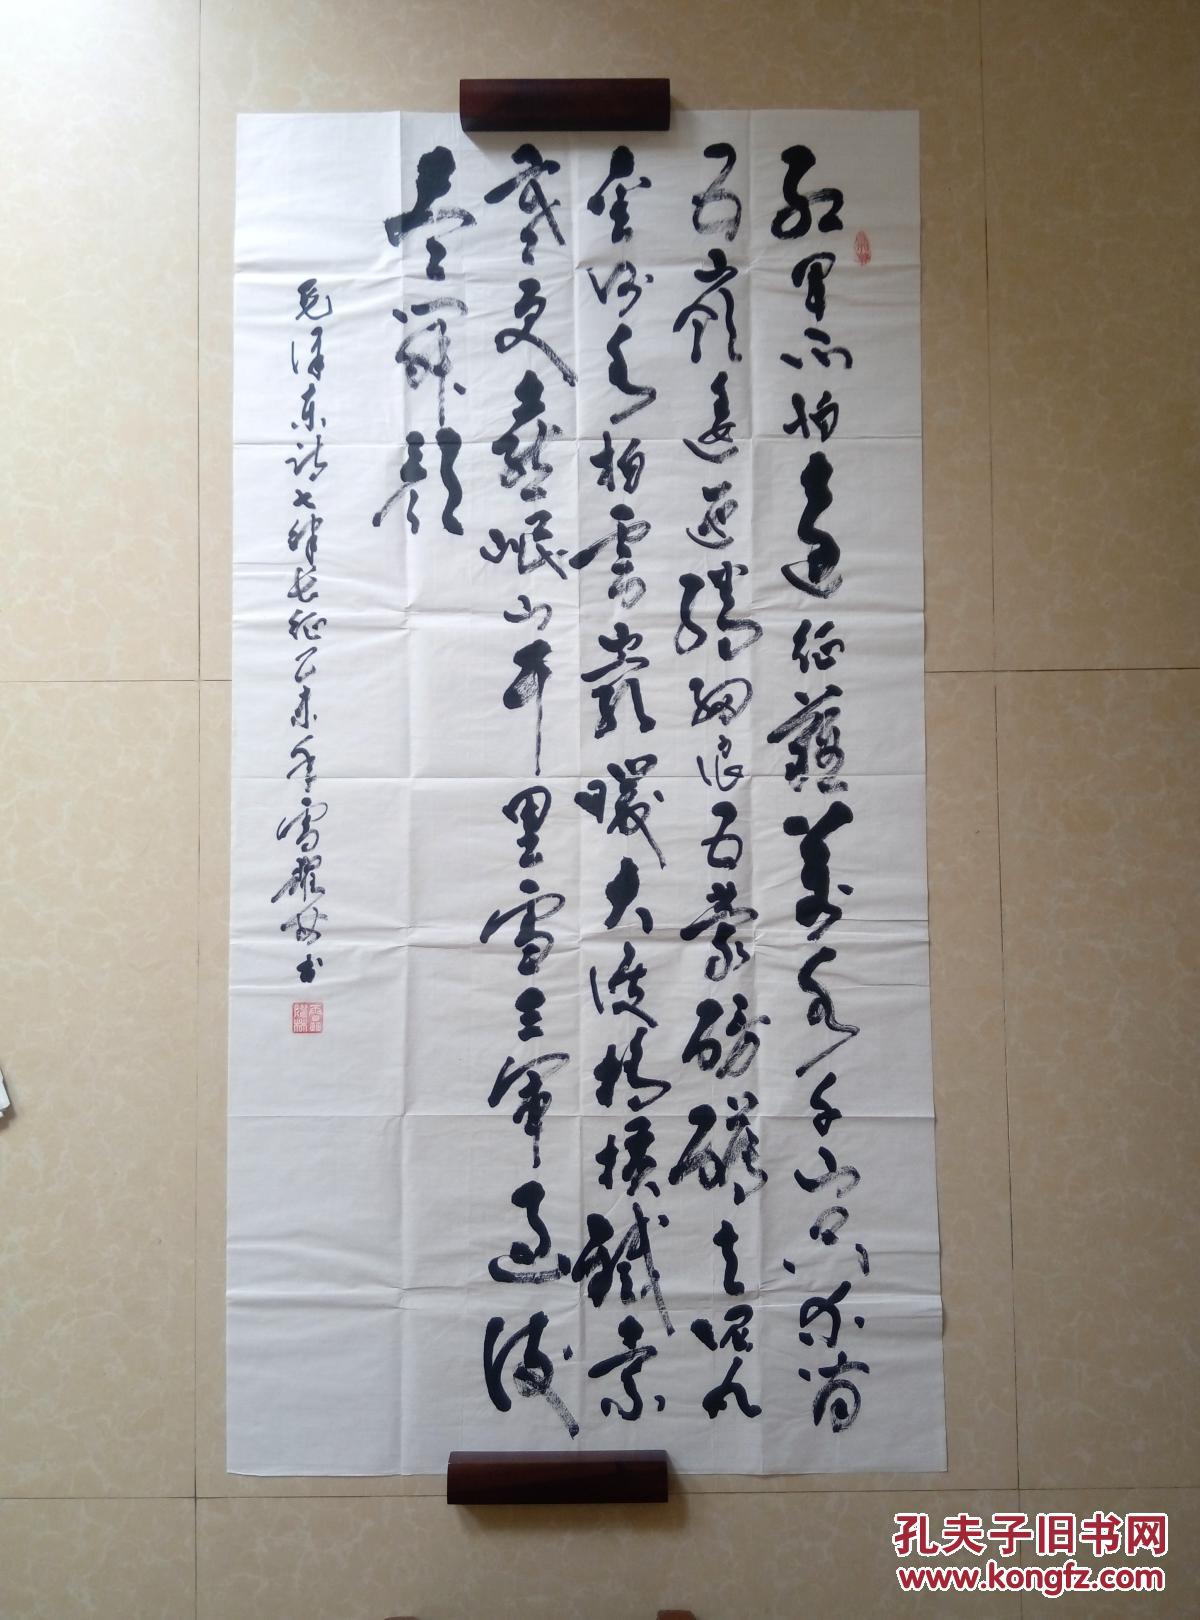 红军不怕远征難萬水千山只等闲
五嶺逶迤腾细浪乌蒙磅礴走泥丸
金沙水拍雲崖暖大渡桥横鐵索
寒更喜岷山千里雪三军过後
盡開颜
毛泽东诗七律长征乙未年雷书
孔夫子旧书网
www.kongfz.com